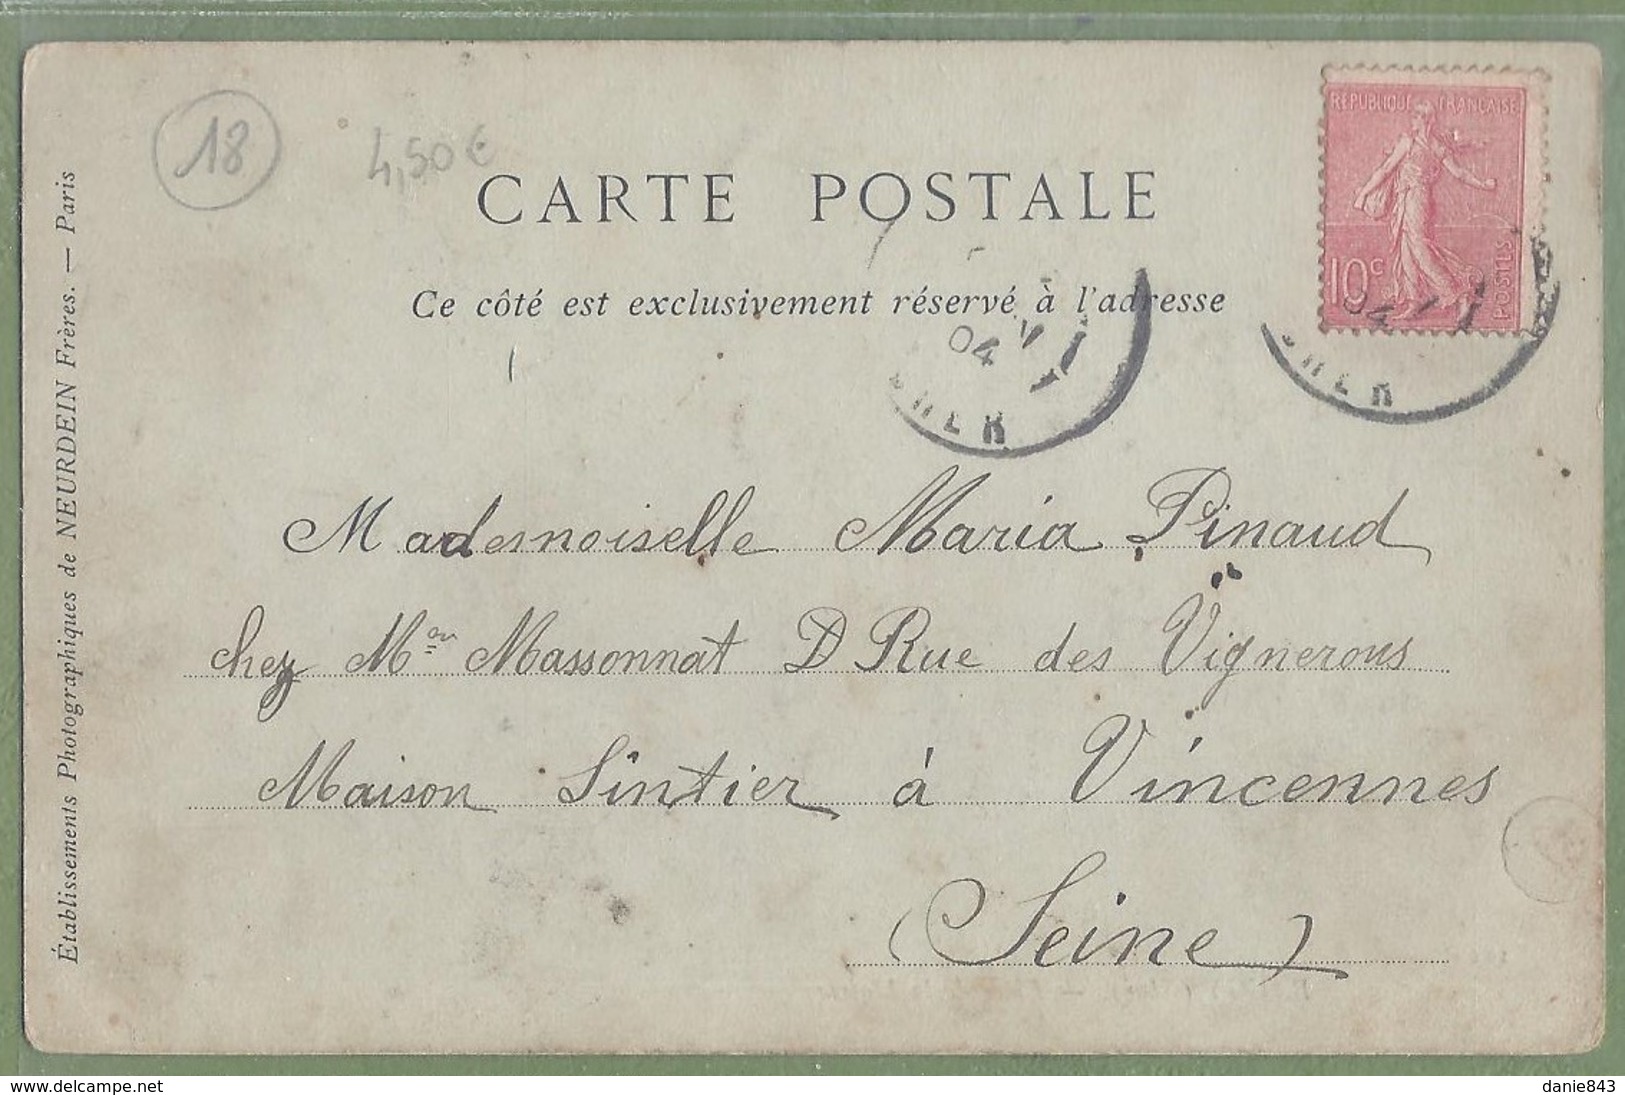 18
4,50€
CARTE POSTALE
Ce côté est exclusivement réservé à l'adresse
REPUBLIQUE FRANÇAISE
10c
POSTES
04
CHER
04
CHER
Établissements Photographiques de NEURDEIN Frères. — Paris
Mademoiselle Maria Pinaud
chez Mon Massonnat D Rue des Vignerons
Maison Sintier à Vincennes
(Seine)
www.delcampe.net
danie843